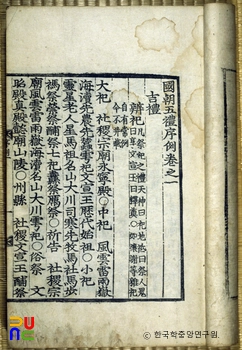 國朝五禮序例卷之一
吉禮
辨祀 凡祭祀之禮天神曰祀地祇曰祭人鬼
曰享文宣王曰釋奠○如 謝等雜祀
自有常例
今不幷載
大祀 社稷宗廟永寧殿○中祀 風雲雷雨嶽
海瀆先農先蠶雩祀文宣王歷代始祖○小祀
靈星老人星馬祖名山大川司寒先牧馬社馬步
禡祭禜祭酺祭七祀纛祭厲祭○祈告 社稷宗
廟風雲雷雨嶽海瀆名山大川雩祀○俗祭 文
昭殿眞殿懿廟山陵○州縣 社稷文宣王酺祭
한국학중앙연구원